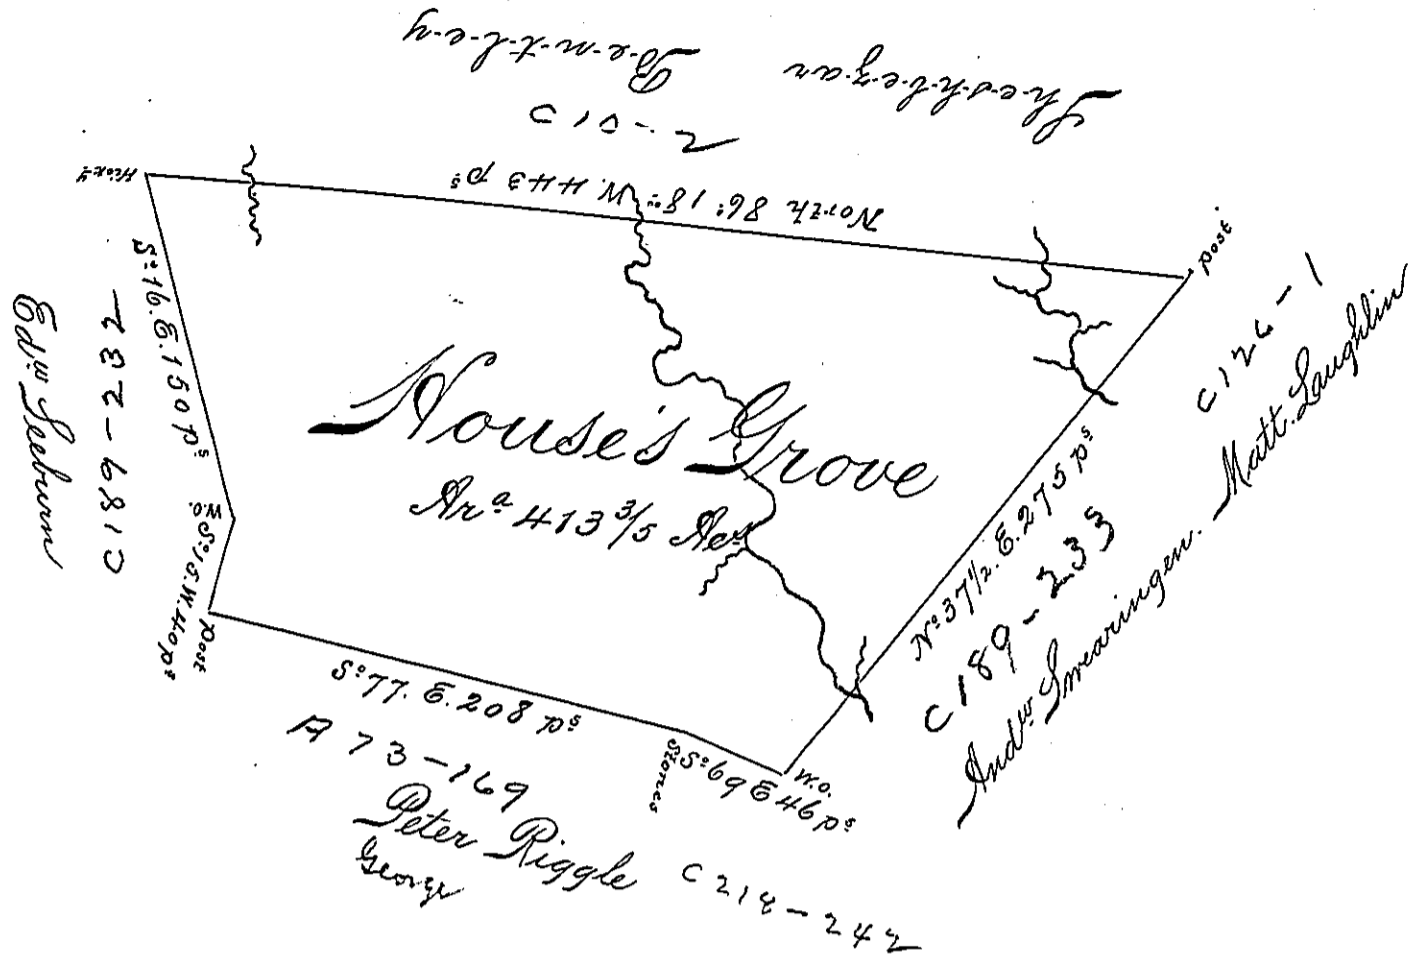 Sheshbezar Bentley
North 86° 18" W. 443 ps
Hick'y
post
S° 16. E. 150 ps
C189-232
Edw Seeburn
W.O.
S° 15. W. 40 ps
post
House's Grove
Ara 413 3/5 Acs
N° 37 1/2. E. 275 ps
C126-1
C189-233
Andw Swearingen. Matt. Laughlin
S° 77. E. 208 ps
Stones
S° 69 E 46 ps
W.O.
A 73-169
Peter Riggle
George
C 212-242